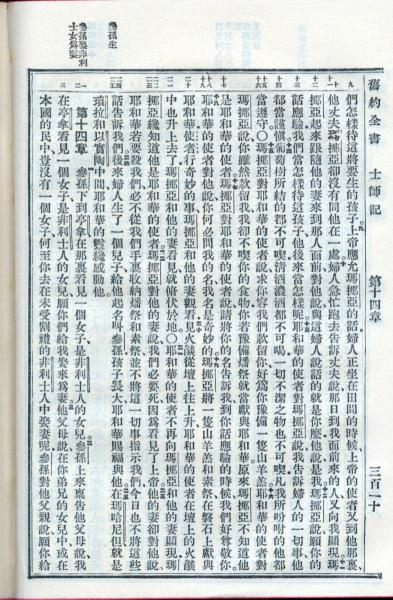 舊約全書　士師記　第十四章　三百一十
們怎樣待這將要生的孩子上帝應允瑪挪亞的話婦人正坐在田間的時候上帝的使者又到他那裏
他丈夫瑪挪亞卻沒有同他在一處婦人急忙跑去告訴丈夫說那日到我面前來的人又向我顯現瑪
挪亞起來跟隨他的妻來到那人面前對他說與這婦人說話的就是你麼他說是我瑪挪亞說願你的
話應驗我們當怎樣待這孩子他後來當怎樣呢耶和華的使者對瑪挪亞說我告訴婦人的一切事他
都當謹慎葡萄樹所結的都不可喫清酒濃酒都不可喝一切不潔之物也不可喫凡我所吩咐的他都
當遵守○瑪挪亞對耶和華的使者說求你容我們款留你好為你豫備一隻山羊羔耶和華的使者對
瑪挪亞說你雖然款留我我卻不喫你的食物你若豫備燔祭就當獻與耶和華原來瑪挪亞不知道他
是耶和華的使者瑪挪亞對耶和華的使者說請將你的名告訴我到你話應驗的時候我們好尊敬你
耶和華的使者對他說你何必問我的名我名是奇妙的瑪挪亞將一隻山羊羔和素祭在磐石上獻與
耶和華使者行奇妙的事瑪挪亞和他的妻觀看見火燄從壇上往上升耶和華的使者在壇上的火燄
中也升上去了瑪挪亞和他的妻看見就俯伏於地○耶和華的使者不再向瑪挪亞和他的妻顯現瑪
挪亞纔知道他是耶和華的使者瑪挪亞對他的妻說我們必要死因為看見了上帝他的妻卻對他說
耶和華若要殺我們必不從我們手裏收納燔祭和素祭並不將這一切事指示我們今日也不將這些
話告訴我們後來婦人生了一個兒子給他起名叫參孫孩子長大耶和華賜福與他在瑪哈尼但就是
瑣拉和以實陶中間耶和華的靈纔感動他
第十四章　參孫下到亭拿在那裏看見一個女子是非利士人的女兒參孫上來稟告他父母說我
在亭拿看見一個女子是非利士人的女兒願你們給我娶來為妻他父母說在你弟兄的女兒中或在
本國的民中豈沒有一個女子何至你去在未受割禮的非利士人中娶妻呢參孫對他父親說願你給
參孫生
參孫娶非利
士女為妻